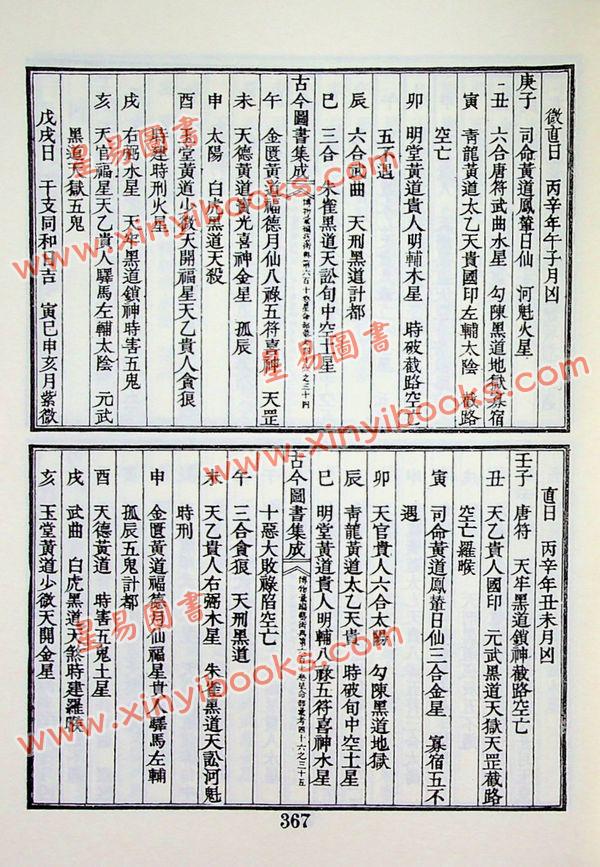 微直日 丙辛年午子月凶
庚子 司命黃道鳳輦日仙 河魁火星
丑 六合唐符武曲水星 勾陳黑道地獄寡宿
寅 青龍黃道太乙天貴國印左輔太陰 截路
空亡
卯 明堂黃道貴人明輔木星 時破截路空亡
五不遇
辰 六合武曲 天刑黑道計都
巳 三合 朱雀黑道天訟旬中空土星
古今圖書集成
午 金匱黃道福德月仙八祿五符喜神 天罡
未 天德黃道寶光喜神金星 孤辰
申 太陽 白虎黑道天殺
酉 玉堂黃道少微天開福星天乙貴人貪狼
時建時刑火星
戌 右弼水星 天牢黑道鎖神時害五鬼
亥 天官福星天乙貴人驛馬左輔太陰 元武
黑道天獄五鬼
戊戌日 干支同和日吉 寅巳申亥月紫微
直日 丙辛年丑未月凶
壬子 唐符 天牢黑道鎖神截路空亡
丑 天乙貴人國印 元武黑道天獄天罡截路
空亡羅睺
寅 司命黃道鳳輦日仙三合金星 寡宿五不
遇
卯 天官貴人六合太陽 勾陳黑道地獄
辰 青龍黃道太乙天貴 時破旬中空土星
巳 明堂黃道貴人明輔八祿五符喜神水星
古今圖書集成
十惡大敗祿陷空亡
午 三合貪狼 天刑黑道
未 天乙貴人右弼木星 朱雀黑道天訟河魁
時刑
申 金匱黃道福德月仙福星貴人驛馬左輔
孤辰五鬼計都
酉 天德黃道 時害五鬼土星
戌 武曲 白虎黑道天煞時建羅睺
亥 玉堂黃道少微天開金星
367
皇易圖書
www.xinyibooks.com
皇易圖書
www.xinyibooks.com
皇易圖書
www.xinyibooks.com
皇易圖書
www.xinyibooks.com